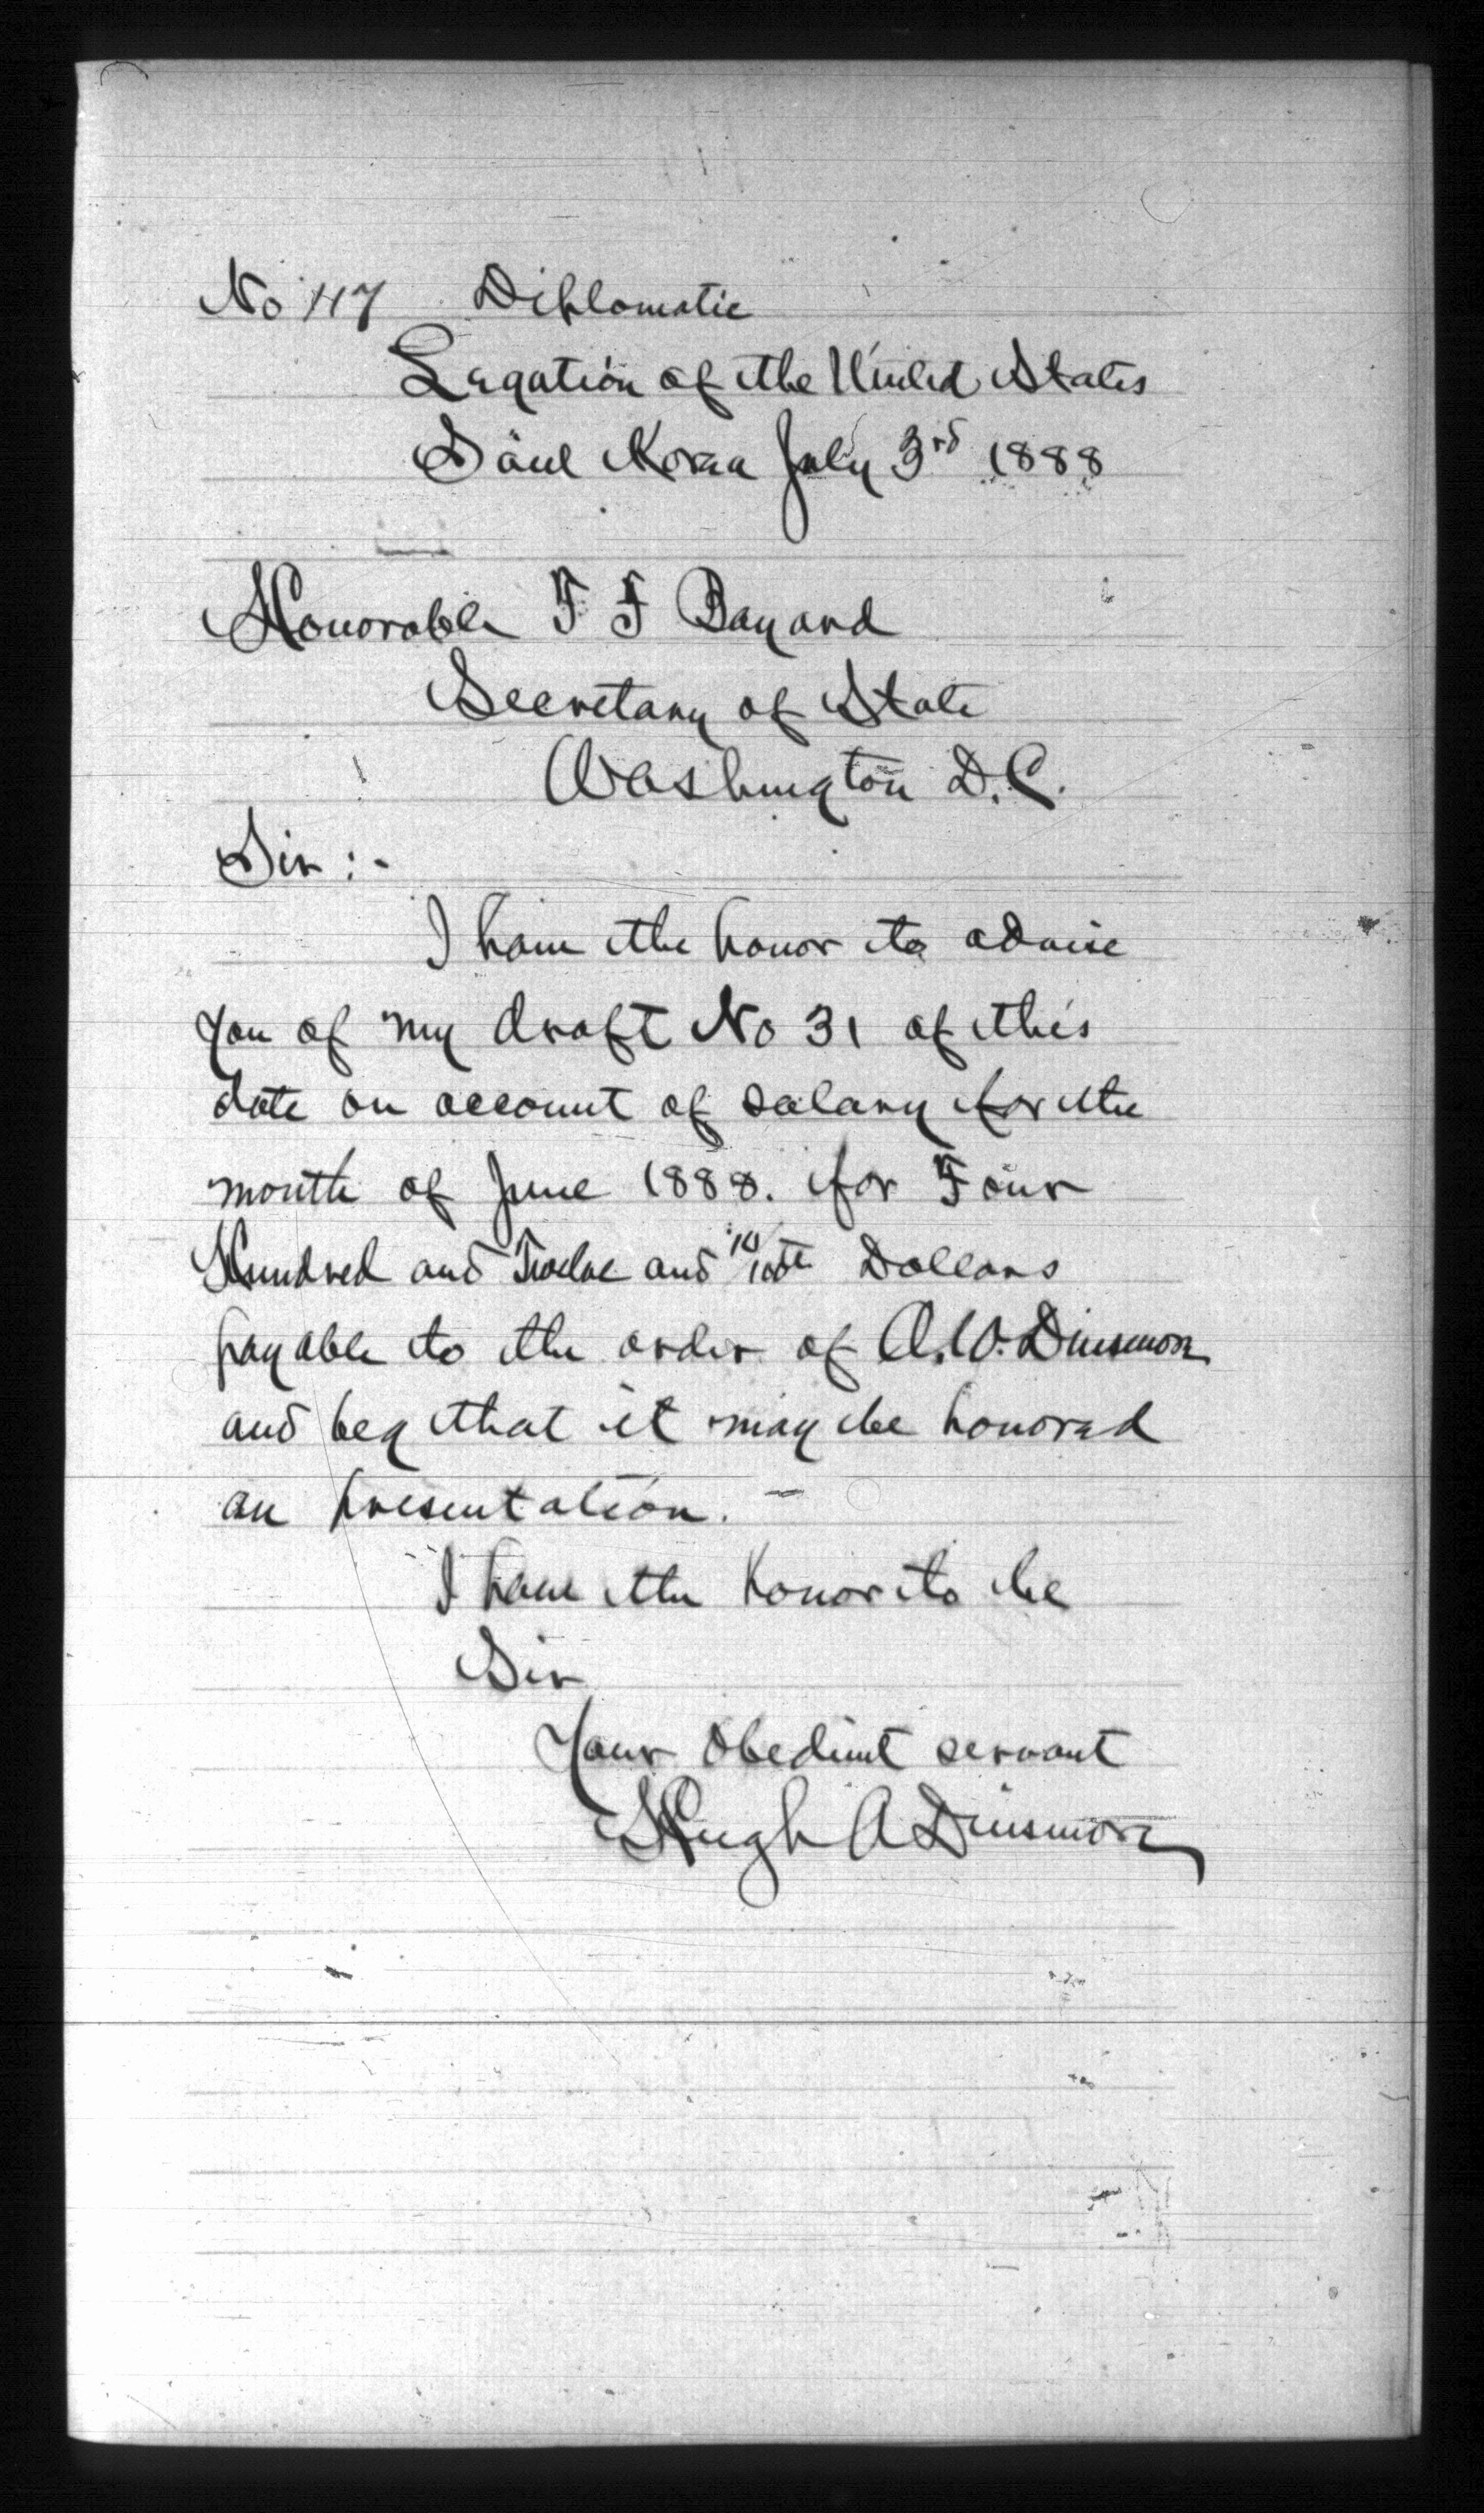 No 117 Diplomatic
Legation of the United States
Söul Korea July 3rd 1888
Honorable T F Bayard
Secretary of State
Washington D.C.
Sir :-
I have the honor to advise
you of my draft No 31 of this
date on account of salary for the
month of June 1888. for Four
Hundred and Twelve and /100th Dollars
payable to the order of A.W. Dinsmore
and beg that it may be honored
on presentation. -
I have the honor to be
Sir
Your obedient servant
Hugh A Dinsmore